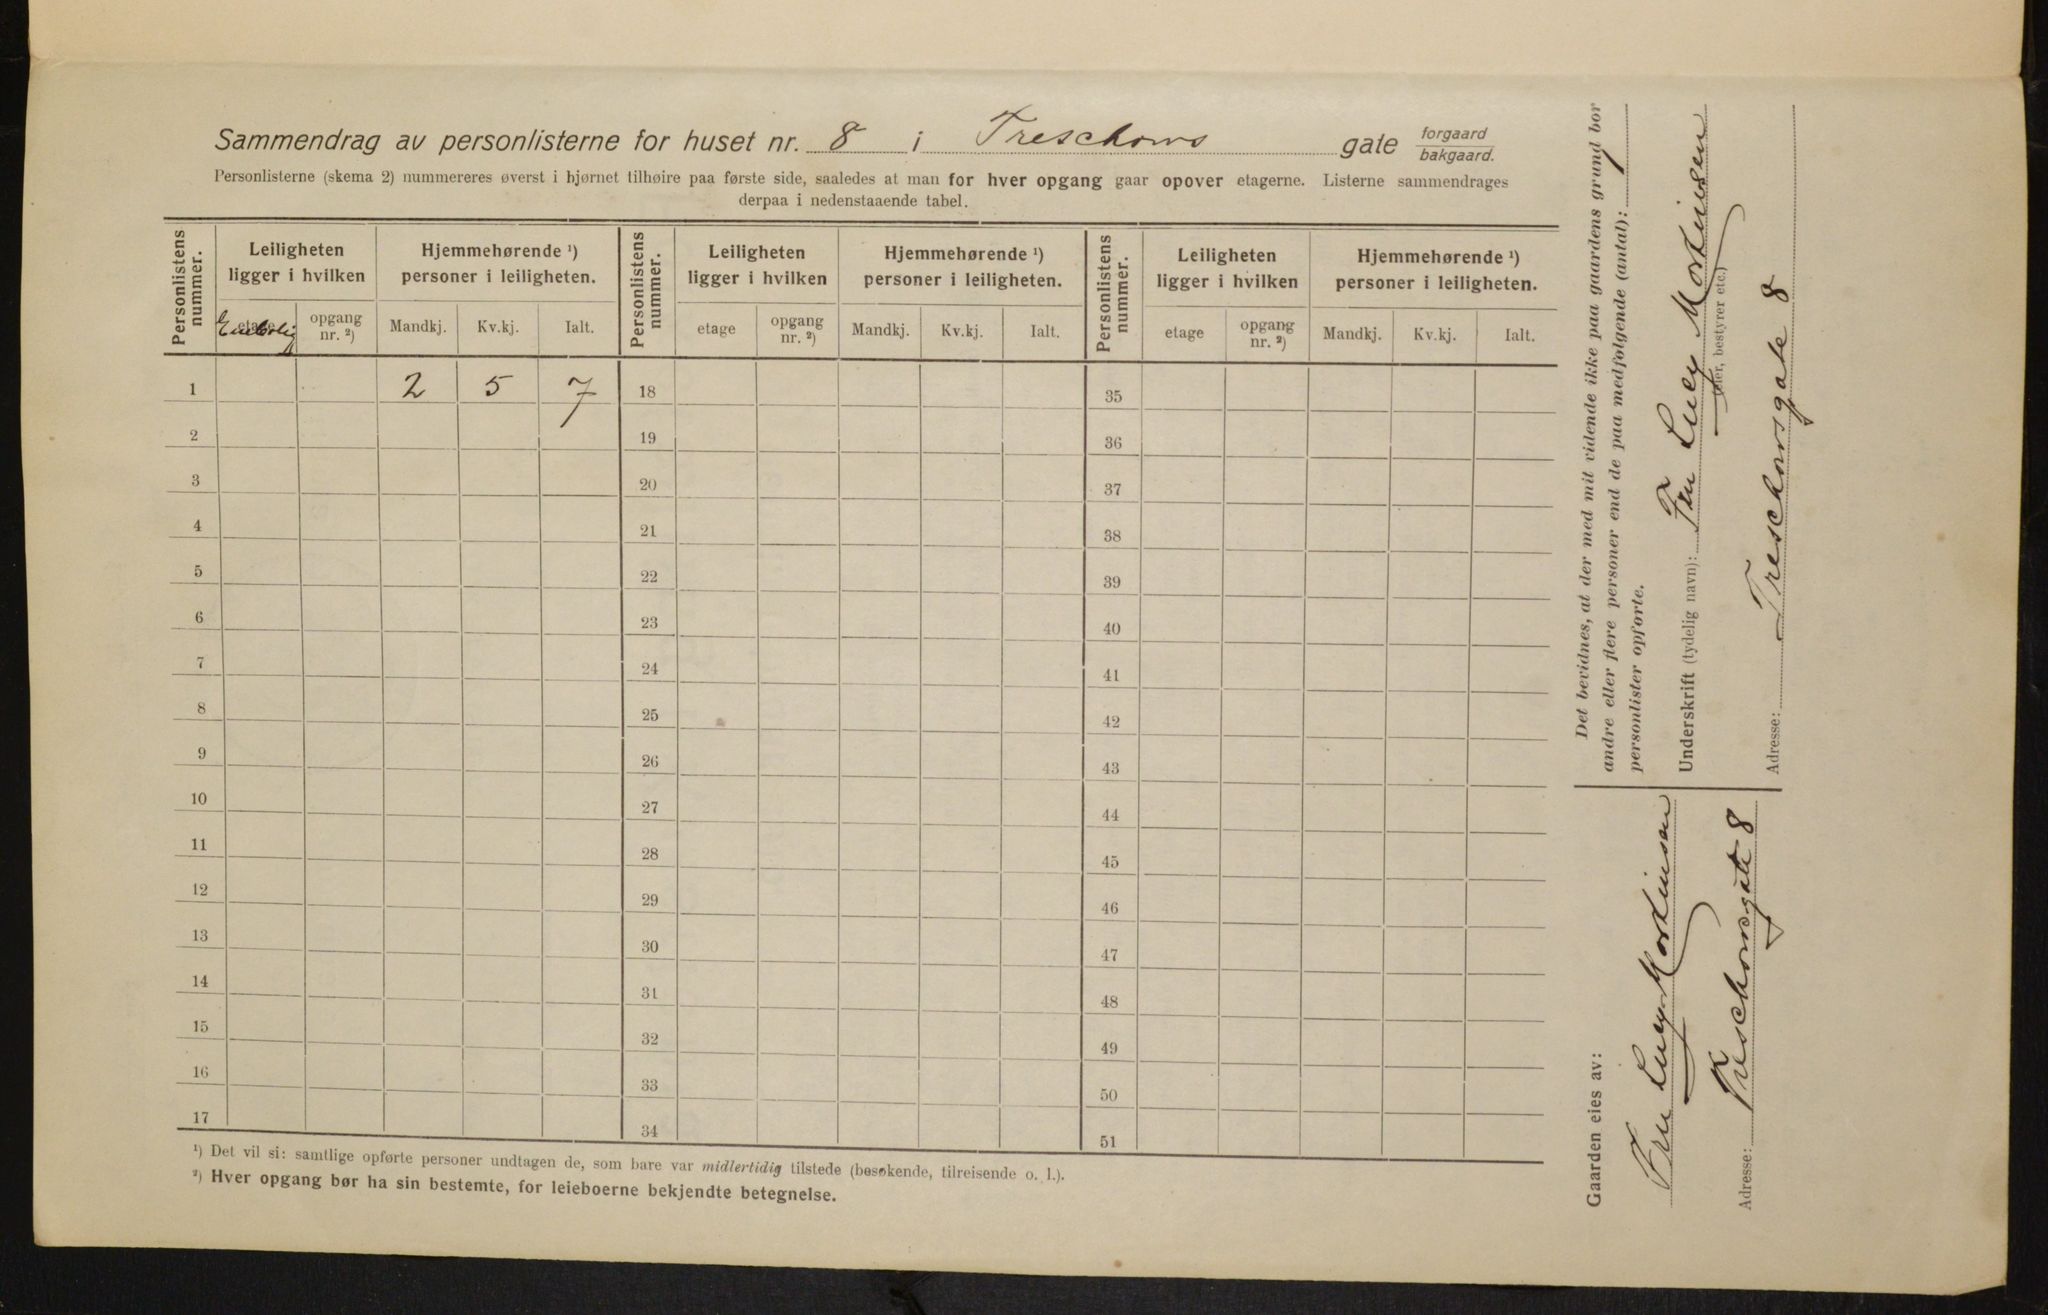 Sammendrag av personlisterne for huset nr. 8 i Treschows gate forgaard bakgaard.
Personlisterne (skema 2) nummereres øverst i hjørnet tilhøire paa første side, saaledes at man for hver opgang gaar opover etagerne. Listerne sammendrages
derpaa i nedenstaaende tabel.
Personlistens nummer. Leiligheten ligger i hvilken Hjemmehørende ¹) personer i leiligheten. Personlistens nummer. Leiligheten ligger i hvilken Hjemmehørende ¹) personer i leiligheten. Personlistens nummer. Leiligheten ligger i hvilken Hjemmehørende ¹) personer i leiligheten.
etage Enebolig opgang nr. ²) Mandkj. Kv.kj. Ialt. etage opgang nr. ²) Mandkj. Kv.kj. Ialt. etage opgang nr. ²) Mandkj. Kv.kj. Ialt.
1 2 5 7 18 35
2 19 36
3 20 37
4 21 38
5 22 39
6 23 40
7 24 41
8 25 42
9 26 43
10 27 44
11 28 45
12 29 46
13 30 47
14 31 48
15 32 49
16 33 50
17 34 51
¹) Det vil si: samtlige opførte personer undtagen de, som bare var midlertidig tilstede (besøkende, tilreisende o. l.).
²) Hver opgang bør ha sin bestemte, for leieboerne bekjendte betegnelse.
Det bevidnes, at der med mit vidende ikke paa gaardens grund bor
andre eller flere personer end de paa medfølgende (antal): 1
personlister opførte.
Underskrift (tydelig navn): Fru Lucy Mortinsen
(eier, bestyrer etc.)
Adresse: Treschowsgate 8
Gaarden eies av:
Fru Lucy Mortinsen
Adresse: Treschowsgate 8